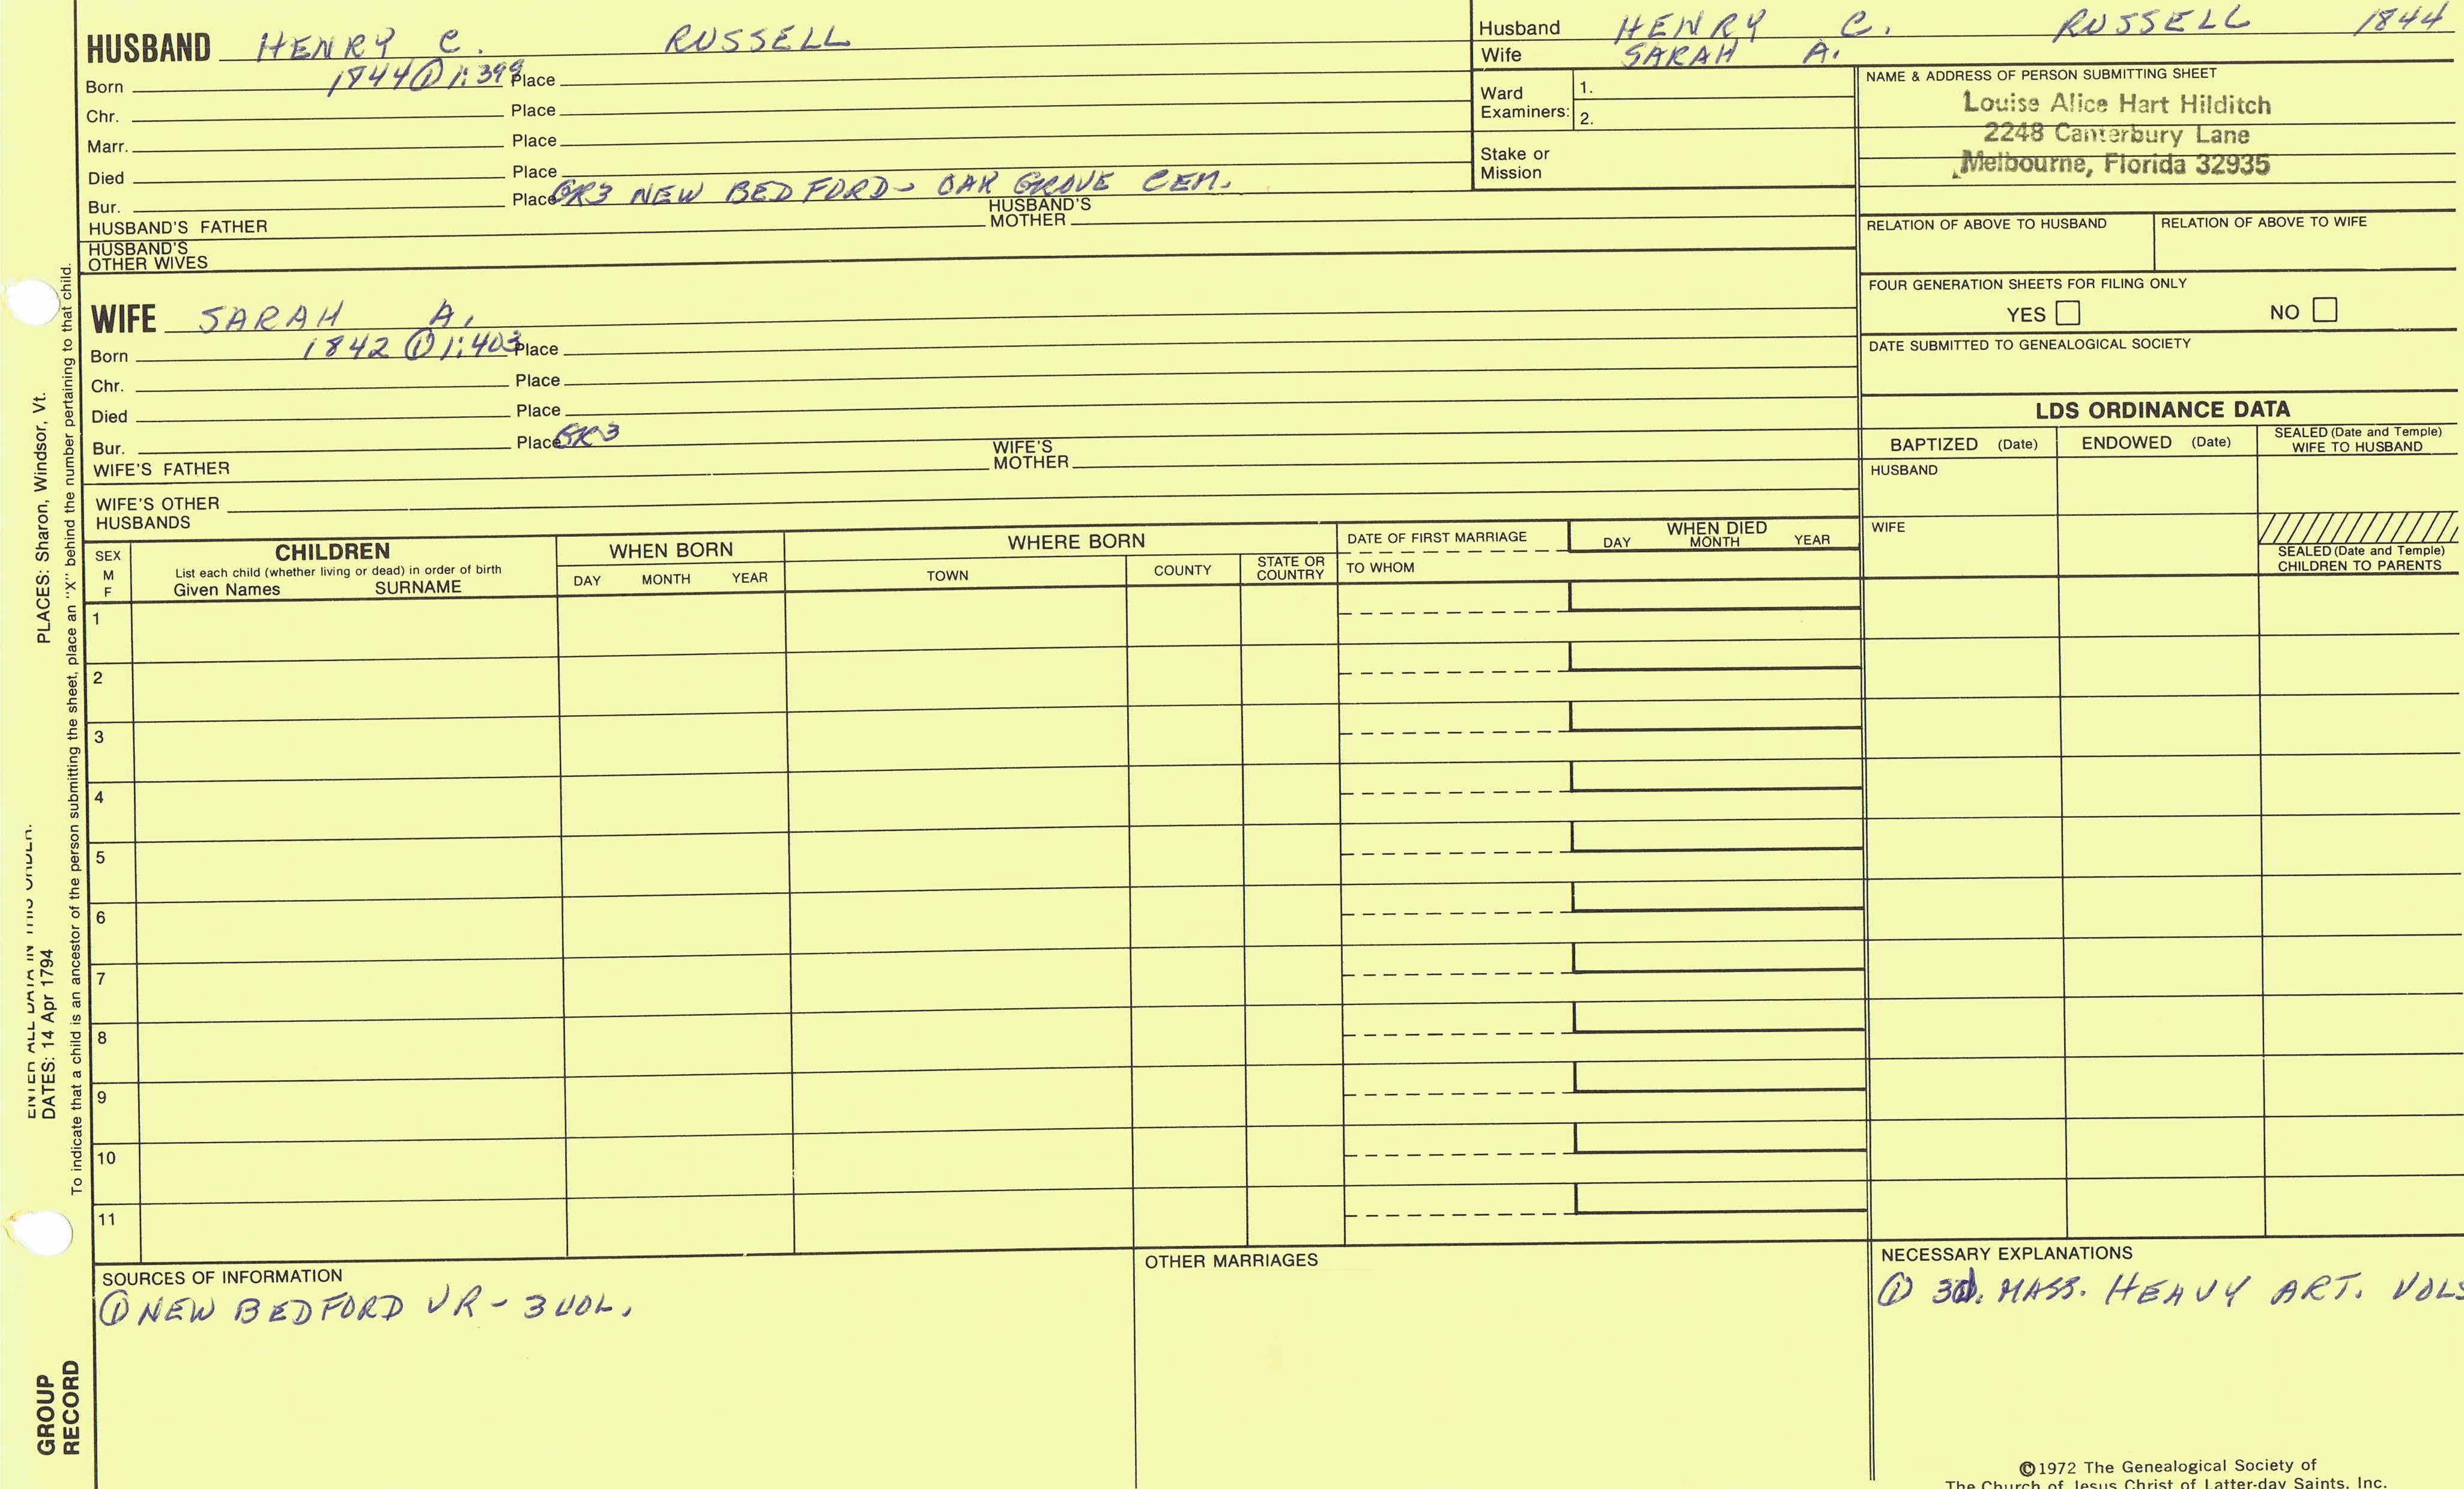 HUSBAND HENRY C. RUSSELL
Born 1844 ① 1:399 Place
Chr. Place
Marr. Place
Died Place
Bur. Place GR3 NEW BEDFORD - OAK GROVE CEM.
HUSBAND'S FATHER HUSBAND'S MOTHER
HUSBAND'S OTHER WIVES
Husband HENRY C. RUSSELL 1844
Wife SARAH A.
Ward Examiners: 1.
2.
Stake or Mission
NAME & ADDRESS OF PERSON SUBMITTING SHEET
Louise Alice Hart Hilditch
2248 Canterbury Lane
Melbourne, Florida 32935
RELATION OF ABOVE TO HUSBAND RELATION OF ABOVE TO WIFE
FOUR GENERATION SHEETS FOR FILING ONLY
YES NO
DATE SUBMITTED TO GENEALOGICAL SOCIETY
WIFE SARAH A.
Born 1842 ① 1:403 Place
Chr. Place
Died Place
Bur. Place GR3
WIFE'S FATHER WIFE'S MOTHER
WIFE'S OTHER HUSBANDS
LDS ORDINANCE DATA
BAPTIZED (Date) ENDOWED (Date) SEALED (Date and Temple) WIFE TO HUSBAND
HUSBAND
WIFE
SEALED (Date and Temple) CHILDREN TO PARENTS
SEX M F
CHILDREN
List each child (whether living or dead) in order of birth
Given Names SURNAME
WHEN BORN
DAY MONTH YEAR
WHERE BORN
TOWN COUNTY STATE OR COUNTRY
DATE OF FIRST MARRIAGE
TO WHOM
WHEN DIED
DAY MONTH YEAR
1
2
3
4
5
6
7
8
9
10
11
SOURCES OF INFORMATION
① NEW BEDFORD VR - 3 VOL.
OTHER MARRIAGES
NECESSARY EXPLANATIONS
① 3d. MASS. HEAVY ART. VOLS
©1972 The Genealogical Society of
The Church of Jesus Christ of Latter-day Saints, Inc.
ENTER ALL DATA IN THIS ORDER:
DATES: 14 Apr 1794 PLACES: Sharon, Windsor, Vt.
To indicate that a child is an ancestor of the person submitting the sheet, place an "X" behind the number pertaining to that child.
GROUP
RECORD